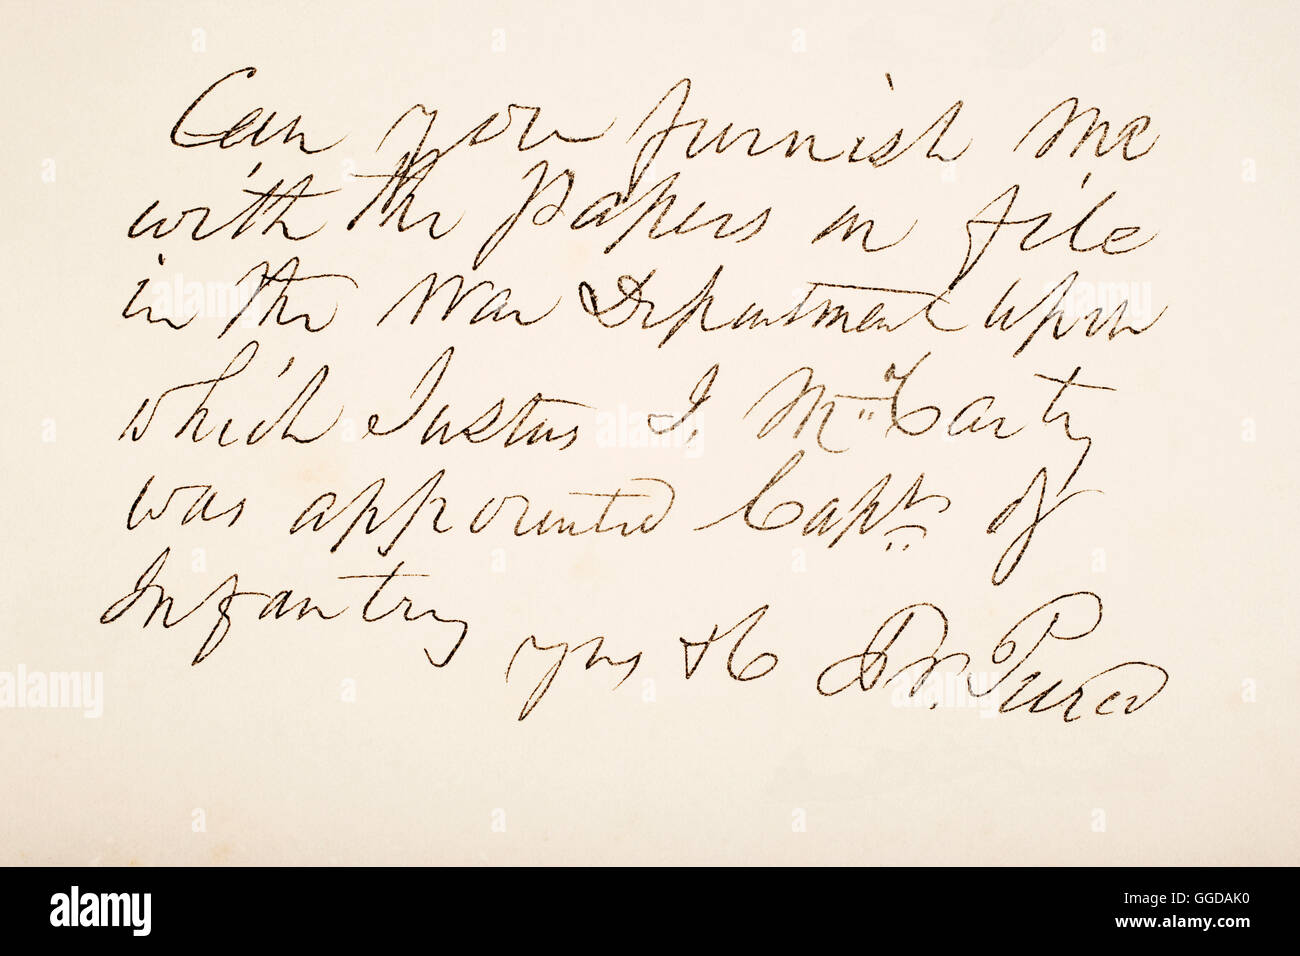 Can you furnish me
with the papers on file
in the War Department upon
which Justus I. McCarty
was appointed Capt of
Infantry
yrs &c
alamy
Image ID: GGDAK0
www.alamy.com